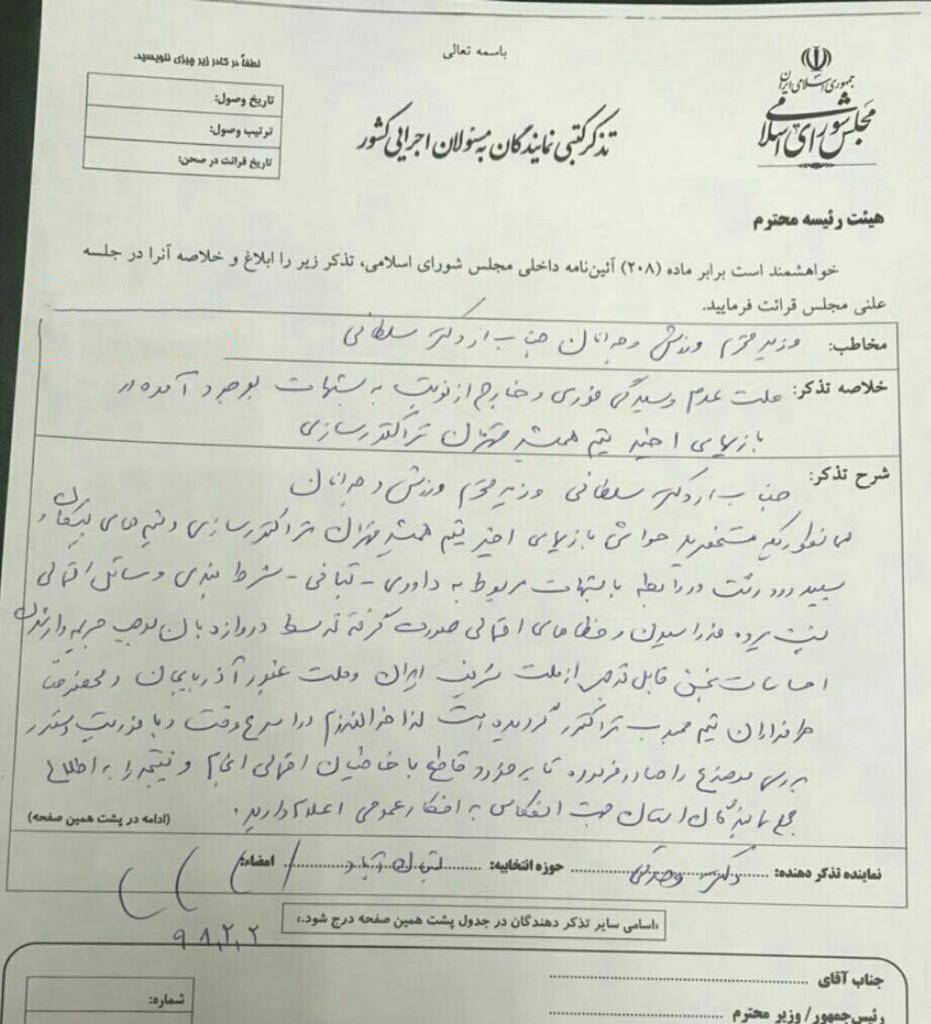 باسمه تعالی
جمهوری اسلامی ایران
مجلس شورای اسلامی
لطفاً در کادر زیر چیزی ننویسید.
تاریخ وصول:
ترتیب وصول:
تاریخ قرائت در صحن:
تذکر کتبی نمایندگان به مسئولان اجرایی کشور
هیئت رئیسه محترم
خواهشمند است برابر ماده (۲۰۸) آئین‌نامه داخلی مجلس شورای اسلامی، تذکر زیر را ابلاغ و خلاصه آنرا در جلسه
علنی مجلس قرائت فرمایید.
مخاطب: وزیر محترم ورزش و جوانان جناب آقای دکتر سلطانی
خلاصه تذکر: علت عدم رسیدگی فوری و خارج از نوبت به شبهات بوجود آمده در
بازیهای اخیر تیم همیشه قهرمان تراکتورسازی
شرح تذکر: جناب آقای دکتر سلطانی وزیر محترم ورزش و جوانان
همانطور که مستحضرید حواشی بازیهای اخیر تیم همیشه قهرمان تراکتورسازی و تیم های پیکان و
سپیدرود رشت در رابطه با شبهات مربوط به داوری - تبانی - شرط بندی و مسائل احتمالی
پشت پرده فدراسیون و خطاهای احتمالی صورت گرفته توسط دروازه بان موجب جریحه دار شدن
احساسات بخش قابل توجهی از ملت شریف ایران و ملت غیور آذربایجان و مخصوصا
طرفداران تیم محبوب تراکتور گردیده است لذا در اسرع وقت و با فوریت دستور
بررسی موضوع را صادر فرموده تا برخورد قاطع با خاطیان احتمالی انجام و نتیجه را به اطلاع
مجمع نمایندگان استان جهت انعکاس به افکار عمومی اعلام دارید.
(ادامه در پشت همین صفحه)
نماینده تذکر دهنده: دکتر حوزه انتخابیه: امضاء:
۹۸,۲,۲
«اسامی سایر تذکر دهندگان در جدول پشت همین صفحه درج شود.»
جناب آقای
رئیس‌جمهور/ وزیر محترم
شماره: